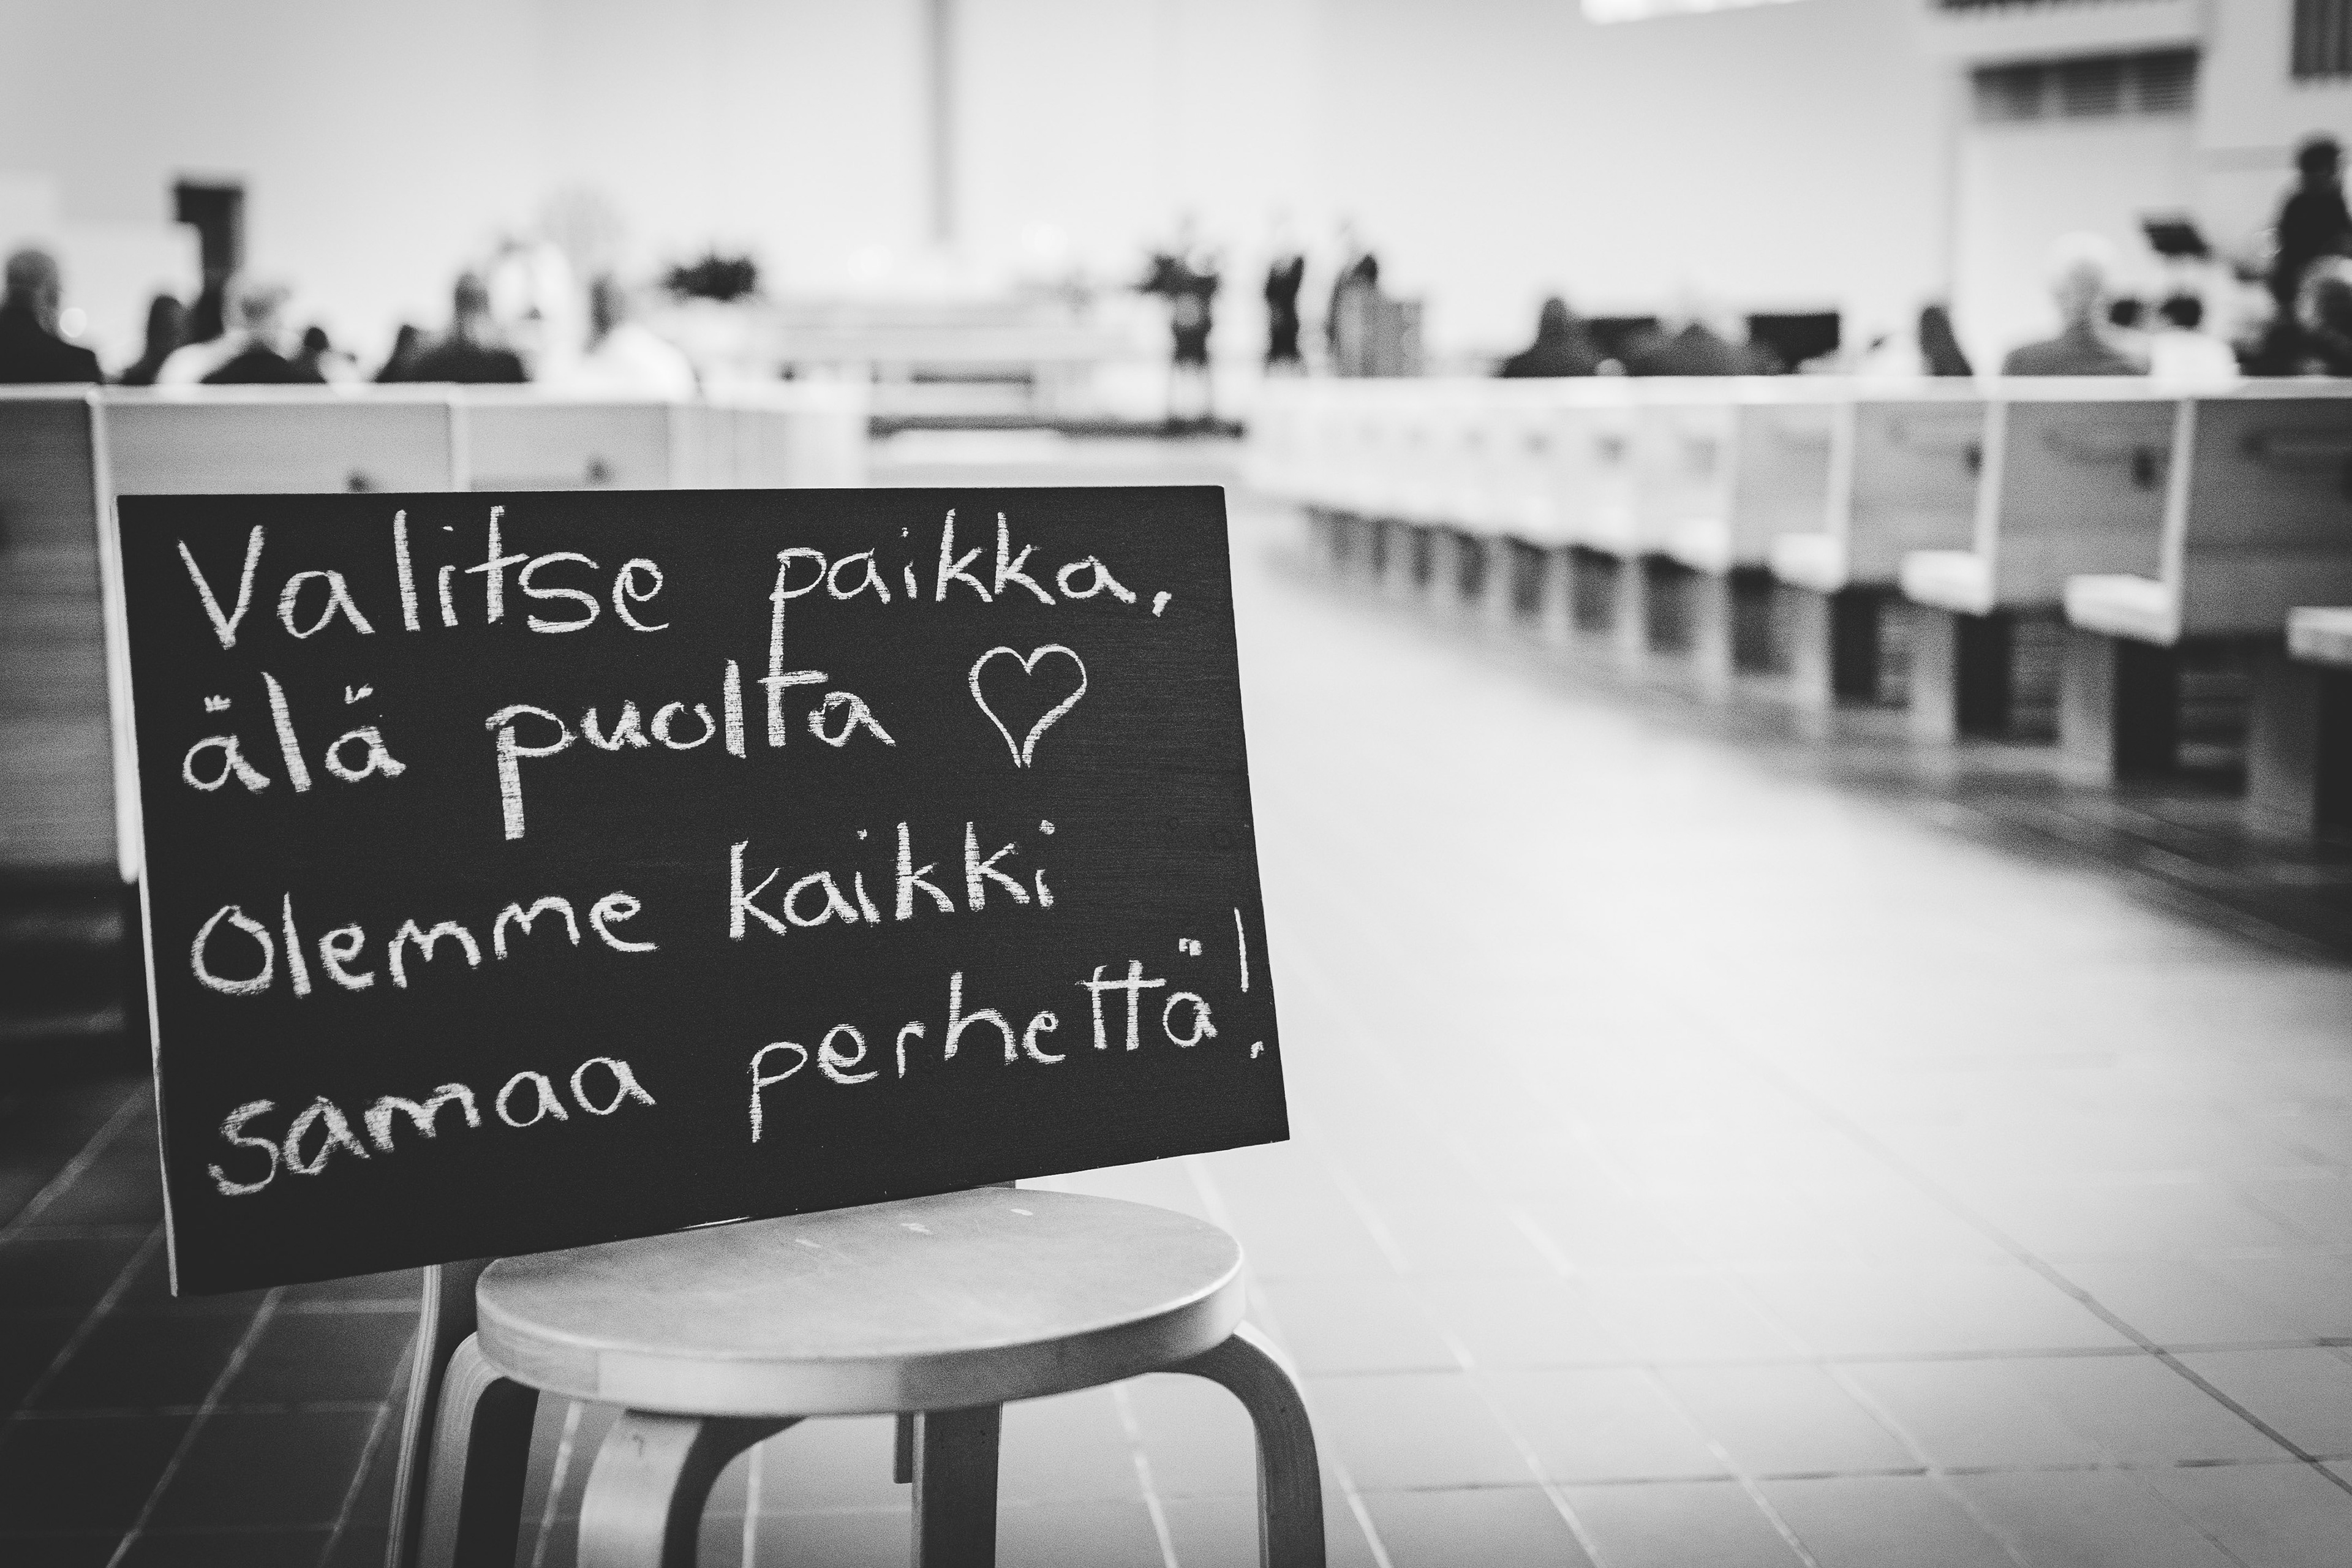 Valitse paikka,
älä puolta ♡
Olemme kaikki
samaa perhettä!